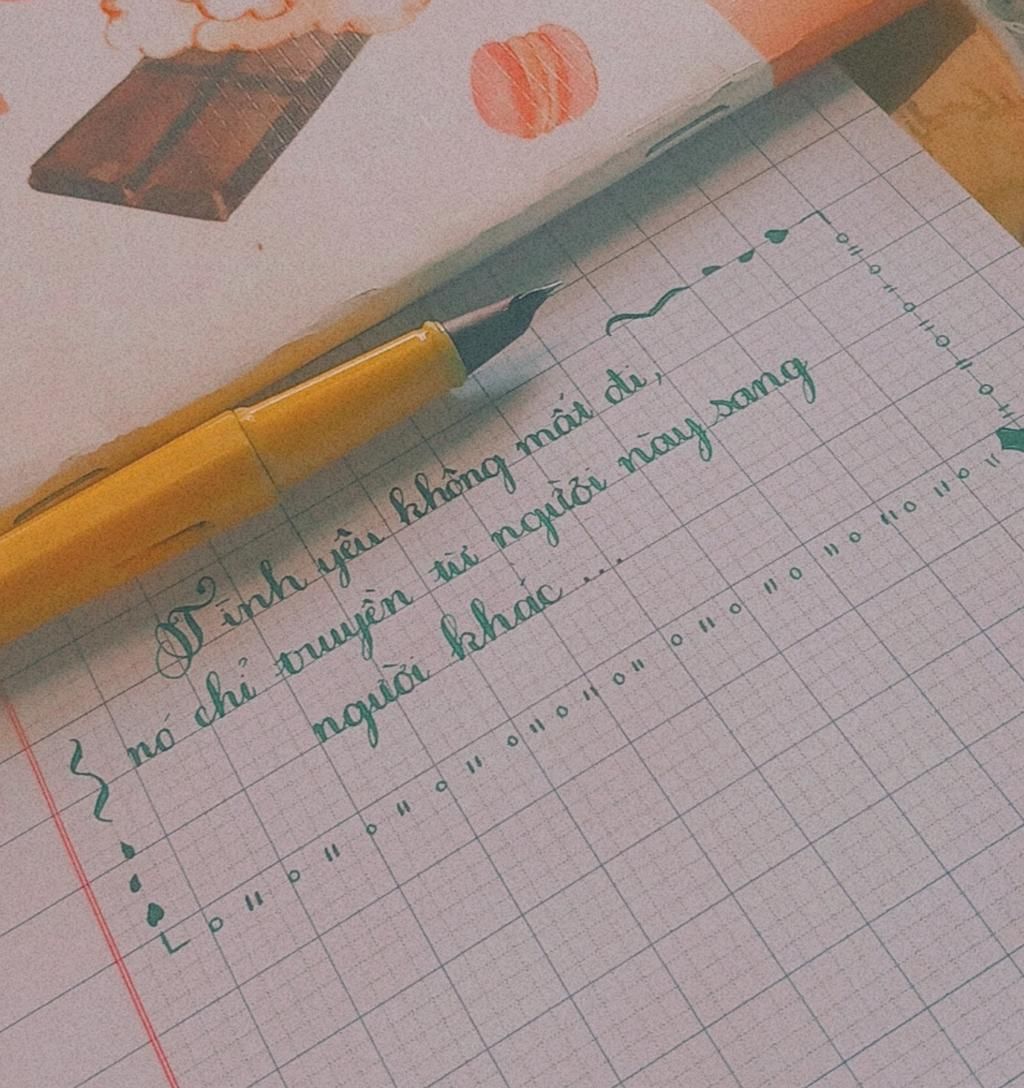 Tình yêu không mất đi,
nó chỉ truyền từ người này sang
người khác ...